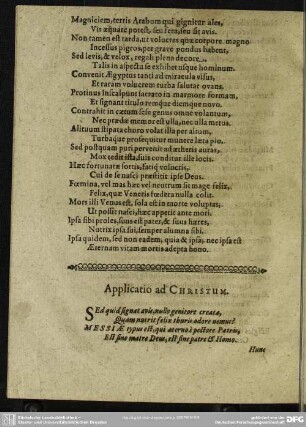 Magniciem, terris Arabum qui gignitur ales,
Vix æquare potest, seu fera, seu sit avis.
Non tamen est tarda, ut volucres quæ corpore magno
Incessus pigros per grave pondus habent,
Sed levis, & velox, regali plena decore.
Talis in aspectu se exhibet usque hominum.
Convenit Ægyptus tanti ad miracula visus,
Et raram volucrem turba salutat ovans.
Protinus insculpunt sacrato in marmore formam,
Et signant titulo remque diemque novo.
Contrahit in cœtum sese genus omne volantum,
Nec prædæ memor est ulla, nec ulla metus.
Alituum stipata choro volat illa per aërum,
Turbaque prosequitur munere læta pio.
Sed postquam puri pervenit ad ætheris auras,
Mox redit ista, suis conditur ille locis.
Hæc fortunatæ sortis, fatiq; volucris,
Cui de se nasci præstitit ipse Deus.
Fœmina, vel mas hæc vel neutrum sit mage felix,
Felix, quæ Veneris fœdera nulla colit.
Mors illi Venus est, sola est in morte voluptas,
Ut possit nasci, hæc appetit ante mori.
Ipsa sibi proles, suus est pater, & suus hæres,
Nutrix ipsa sui, semper alumna sibi.
Ipsa quidem, sed non eadem, quia & ipsa, nec ipsa est
Æternam vitam mortis adepta bono.
Applicatio ad CHRISTUM.
SEd quid signat avis, nullo genitore creata,
Quam nutrit felix thuris odore nemus?
MESSIÆ typus est, qui æterno è pectore Patris,
Est sine matre Deus, est sine patre & Homo.
Hunc